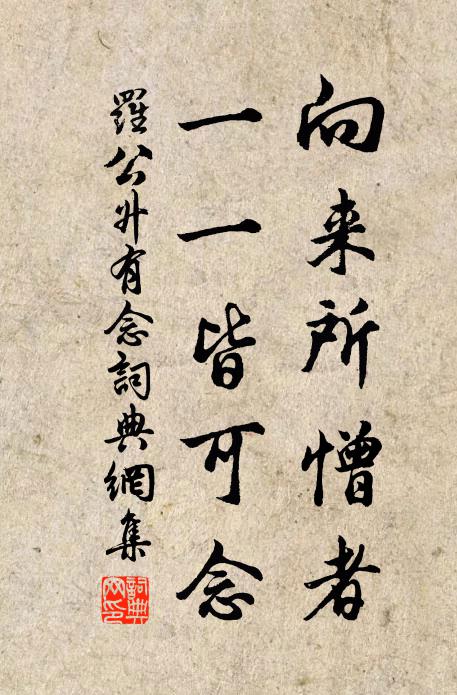 向来所憎者
一一皆可念
羅公升有念詞典網集
詞典